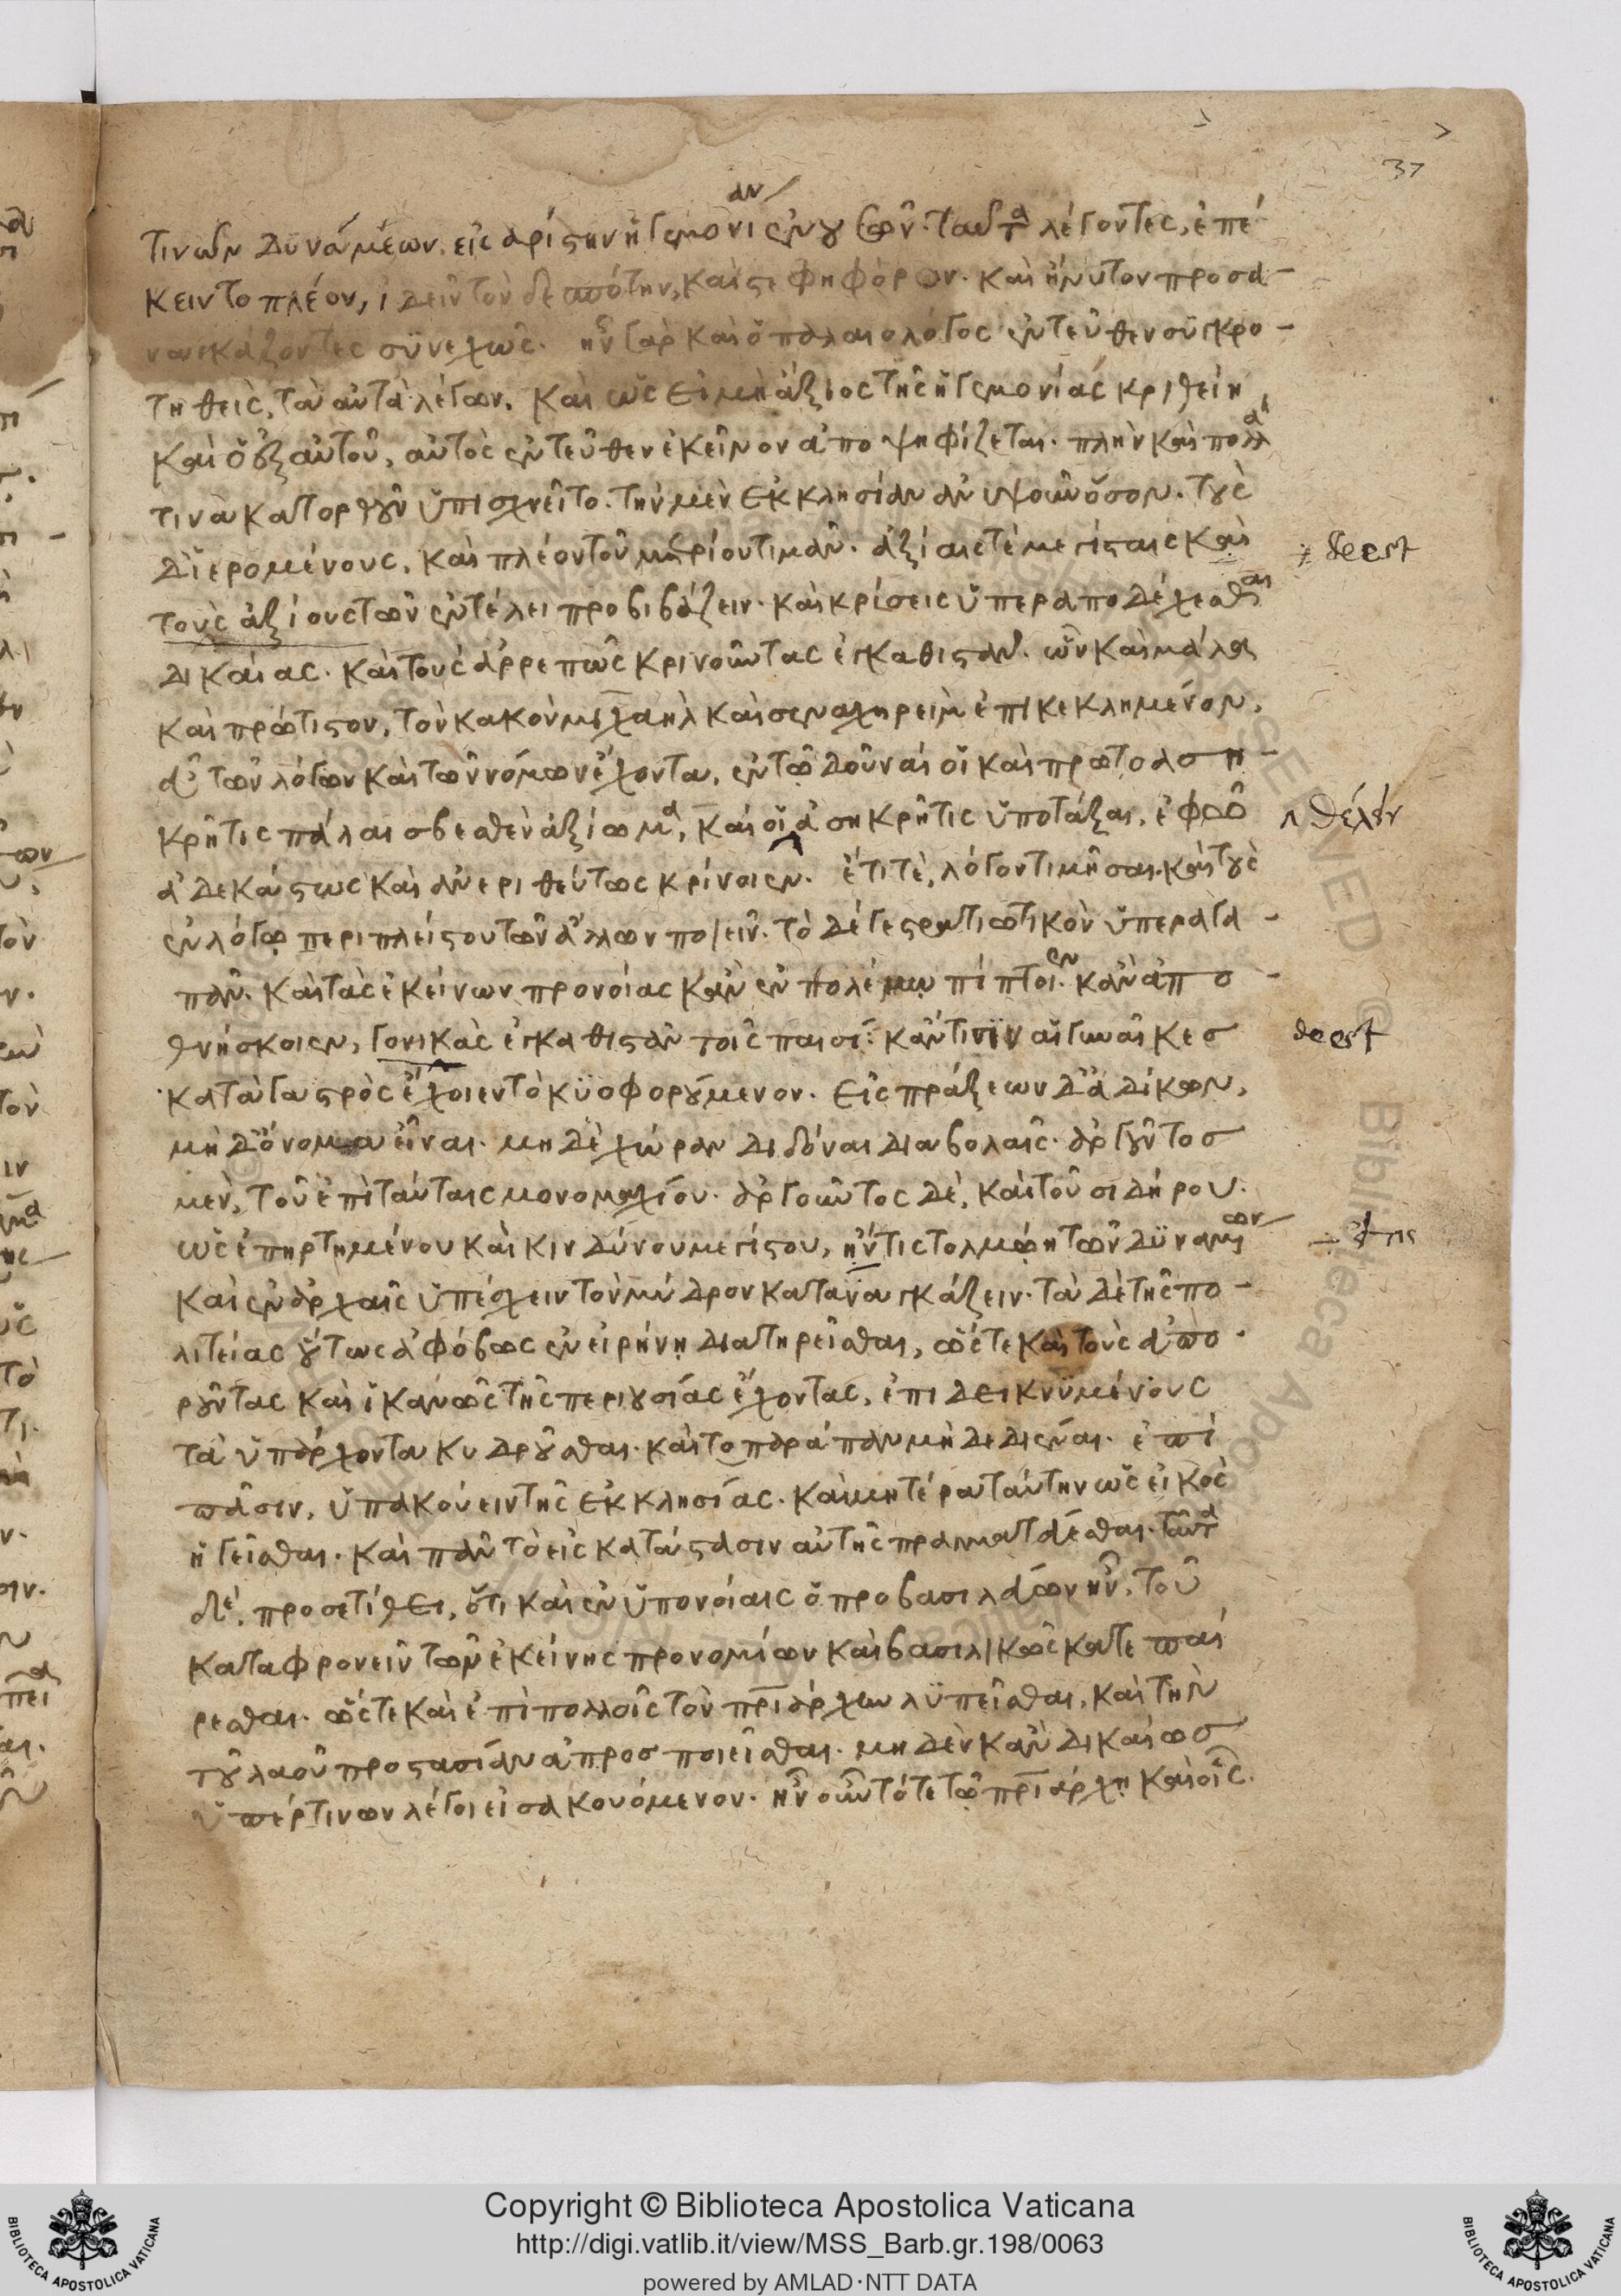 37
τινων δυνάμεων, εἰς ἀρίστην ἡγεμονίαν ἐνουσῶν. ταῦτα λέγοντες, ἐπέ
κειντο πλέον, ἰδεῖν τὸν δεσπότην, καὶ στεφηφόρον. καὶ ἤνυτον προσα-
ναγκάζοντες συνεχῶς. ἦν γὰρ καὶ ὁ παλαιολόγος ἐντεῦθεν συγκρο-
τηθεὶς, τὰ αὐτὰ λέγων. καὶ ὡς εἰ μὴ ἄξιος τῆς ἡγεμονίας κριθείη
καὶ ὁ ἐξ αὐτοῦ, αὐτὸς ἐντεῦθεν ἐκεῖνον ἀποψηφίζεται. πλὴν καὶ πολλά
τινὰ κατορθοῦν ὑπισχνεῖτο. τὴν μὲν ἐκκλησίαν ἀνυψοῦν ὅσον. τοὺς
δ' ἱερομένους, καὶ πλέον τοῦ μετρίου τιμᾶν. ἀξίαις τε μεγίσταις καὶ
deest
τοὺς ἀξίους τῶν ἐν τέλει προβιβάζειν. καὶ κρίσεις ὑπεραποδέχεσθαι
δικαίας. καὶ τοὺς ἀρρεπῶς κρινοῦντας ἐγκαθιστᾶν. ὧν καὶ μάλα
καὶ πρώτιστον, τὸν κακὸν μιχαὴλ καὶ σεναχηρεὶμ ἐπικεκλημένον,
εὖ τῶν λόγων καὶ τῶν νόμων ἔχοντα, ἐν τῷ δοῦναί οἱ καὶ πρωτοαση-
κρῆτις πάλαι σβεσθὲν ἀξίωμα, καὶ οἱ ἀσηκρῆτις ὑποτάξαι, ἐφ' ᾧ
θέλειν
ἀδεκάστως καὶ ἀνεριθεύτως κρίνοιεν. ἔτι τὲ, λόγον τιμῆσαι. καὶ τοὺς
ἐν λόγῳ περιπλείστου τῶν ἄλλων ποιεῖν. τὸ δέ γε στρατιωτικὸν ὑπεραγα-
πᾶν. καὶ τὰς ἐκείνων προνοίας κἂν ἐν πολέμῳ πίπτοιεν κἂν ἀπο-
θνήσκοιεν, γονικὰς ἐγκαθιστᾶν τοῖς παισί: κἄν τισιν αἱ γυναῖκες
deest
κατὰ γαστρὸς ἔχοιεν τὸ κυοφορούμενον. εἰς πράξεων δ' ἀδίκων,
μὴ δ' ὄνομα εἶναι. μὴ δὲ χώραν διδόναι διαβολαῖς. ἀργοῦντος
μὲν, τοῦ ἐπὶ ταύταις μονομαχίου. ἀργοῦντος δὲ, καὶ τοῦ σιδήρου.
ὡς ἐπηρτημένου καὶ κινδύνου μεγίστου, ἤν τις τολμῴη τῶν δυναμένων
καὶ ἐν ἀρχαῖς ὑπέσχειν τὸν μύδρον καταναγκάζειν. τὰ δὲ τῆς πο-
λιτείας οὕτως ἀφόβως ἐν εἰρήνῃ διατηρεῖσθαι, ὥστε καὶ τοὺς εὐπο-
ροῦντας καὶ ἱκανῶς τῆς περιουσίας ἔχοντας, ἐπιδεικνυμένους
τὰ ὑπάρχοντα κυδροῦσθαι. καὶ το παράπαν μὴ δεδιέναι. ἐπὶ
πᾶσιν, ὑπακούειν τῆς ἐκκλησίας. καὶ μητέρα ταύτην ὡς εἰκὸς
ἡγεῖσθαι. καὶ πᾶν τὸ εἰς κατάστασιν αὐτῆς πραγματεύεσθαι. ταῦτα
δὲ, προσετίθει, ὅτι καὶ ἐν ὑπονοίαις ὁ προβασιλεύων ἦν, τοῦ
καταφρονεῖν τῶν ἐκείνης προνομίων καὶ βασιλικῶς κατεπαί
ρεσθαι. ὥστε καὶ ἐπὶ πολλοῖς τὸν πριάρχην λυπεῖσθαι, καὶ τὴν
τοῦ λαοῦ προστασίαν ἀπροσποιεῖσθαι. μὴ δὲν κἂν δικαίως
ὑπέρ τινων λέγοι εἰσακουόμενον. ἦν οὖν τότε τῷ πριάρχῃ καὶ οἷς.
Copyright © Biblioteca Apostolica Vaticana
http://digi.vatlib.it/view/MSS_Barb.gr.198/0063
powered by AMLAD·NTT DATA